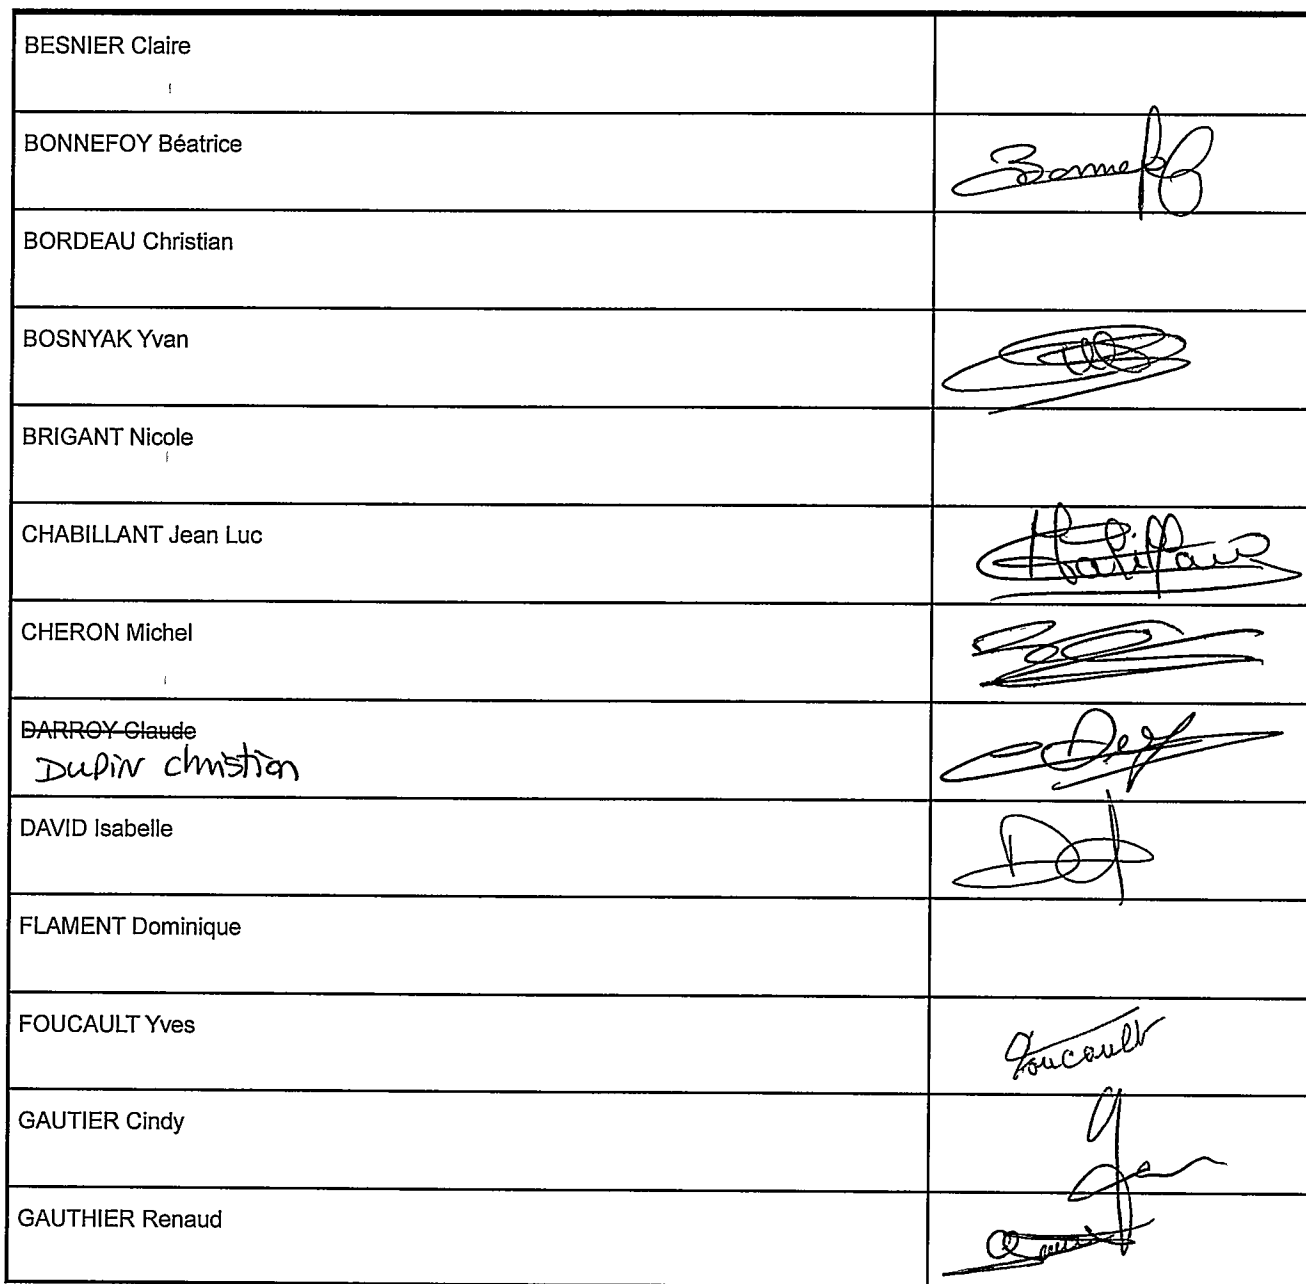 BESNIER Claire
BONNEFOY Béatrice
BORDEAU Christian
BOSNYAK Yvan
BRIGANT Nicole
CHABILLANT Jean Luc
CHERON Michel
DARROY Claude
DUPIN Christian
DAVID Isabelle
FLAMENT Dominique
FOUCAULT Yves
Foucault
GAUTIER Cindy
GAUTHIER Renaud